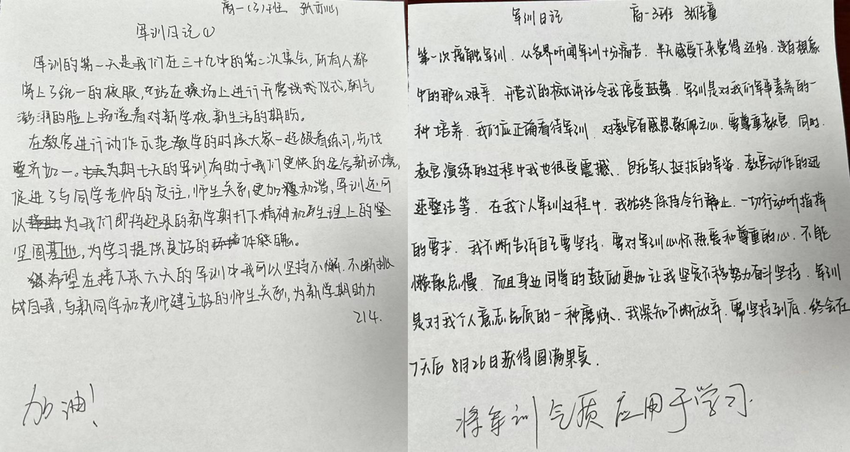 高一(3)班
军训日记①
军训的第一天是我们在三十九中的第二次集会,所有人都
穿上了统一的校服,站在操场上进行开营议式仪式,朝气
澎湃的脸上洋溢着对新学校,新生活的期盼。
在教官进行动作示范教学的时候大家一起跟着练习,步伐
整齐如一。为期七天的军训有助于我们更快的适合新环境,
促进了与同学老师的友谊,师生关系更加和谐,军训还可
以为我们即将迎来的新学期打下精神和生理上的坚
坚固基地,为学习提供良好的体魄。
希望在接下来六天的军训中我可以坚持不懈,不断挑
战自我,与新同学和老师建立好的师生关系,为新学期助力
214.
加油!
军训日记 高一3班
第一次接触军训,从各界听闻军训十分痛苦,半天感受下来觉得还好,没有想象
中的那么艰辛,开营式的校长讲话令我倍受鼓舞,军训是对我们军事素养的一
种培养,我们应正确看待军训,对教官有感恩敬佩之心,要尊重教官,同时,
教官演练的过程中我也很受震撼,包括军人挺拔的军姿,教官动作的迅
速整洁等,在我个人军训过程中,我始终保持令行静止,一切行动听指挥
的要求,我不断告诉自己要坚持,要对军训心怀热爱和尊重的心,不能
懒散怠慢,而且身边同学的鼓励更加让我坚定不移努力奋斗坚持,军训
是对我个人意志品质的一种磨炼,我深知不断放弃,要坚持到底,终会在
7天后8月26日获得圆满果实
将军训气质应用于学习.